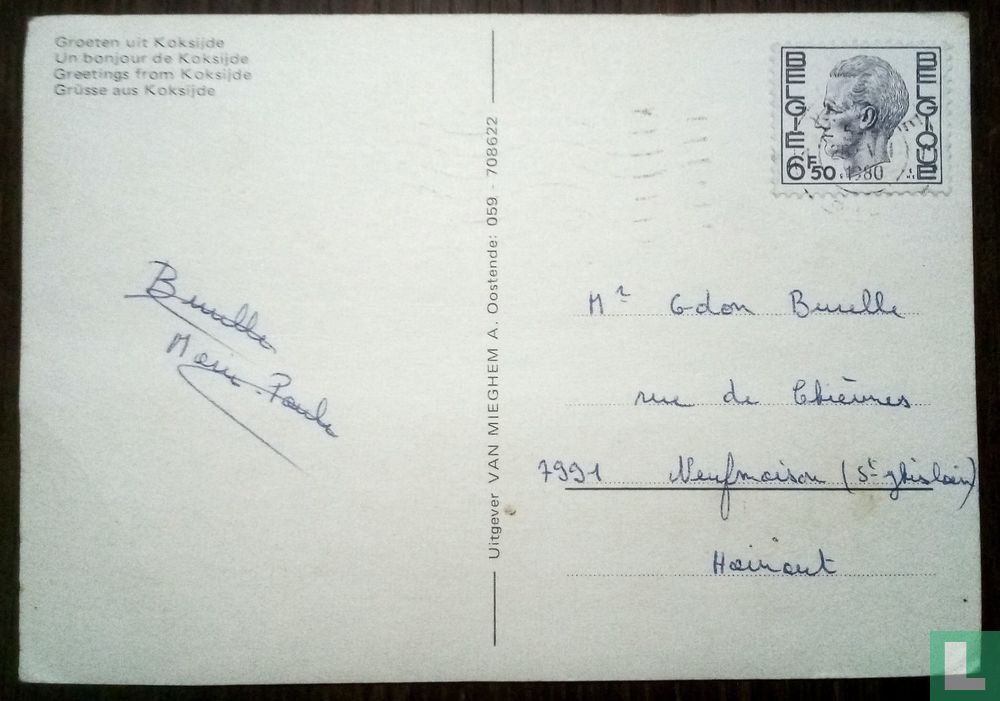 Groeten uit Koksijde
Un bonjour de Koksijde
Greetings from Koksijde
Grüsse aus Koksijde
BELGIE
BELGIQUE
6F50
1980
Uitgever VAN MIEGHEM A. Oostende: 059 - 708622
Burelle
Marie-Paule
Mr G-don Burelle
rue de Chièvres
7991 Neufmaison (St-ghislain)
Hainaut
L